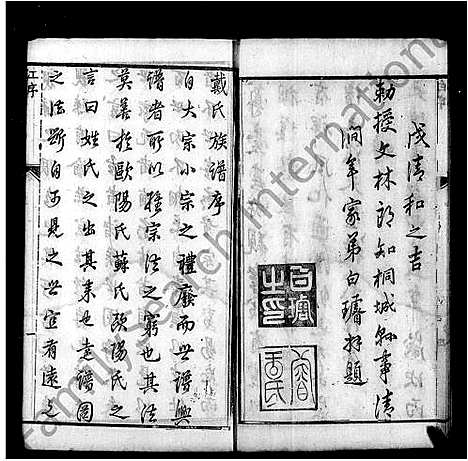 戊清和之吉
勅授文林郎知桐城縣事清
澗年家弟白璿拜題
白璿之印
戴氏族譜序
自大宗小宗之禮廢而世譜興
譜者所以維宗法之窮也其法
莫善於歐陽氏蘇氏歐陽氏之
言曰姓氏之出其來也遠譜圖
之法斷自可見之世宜有遠之
江序
一
FamilySearch International